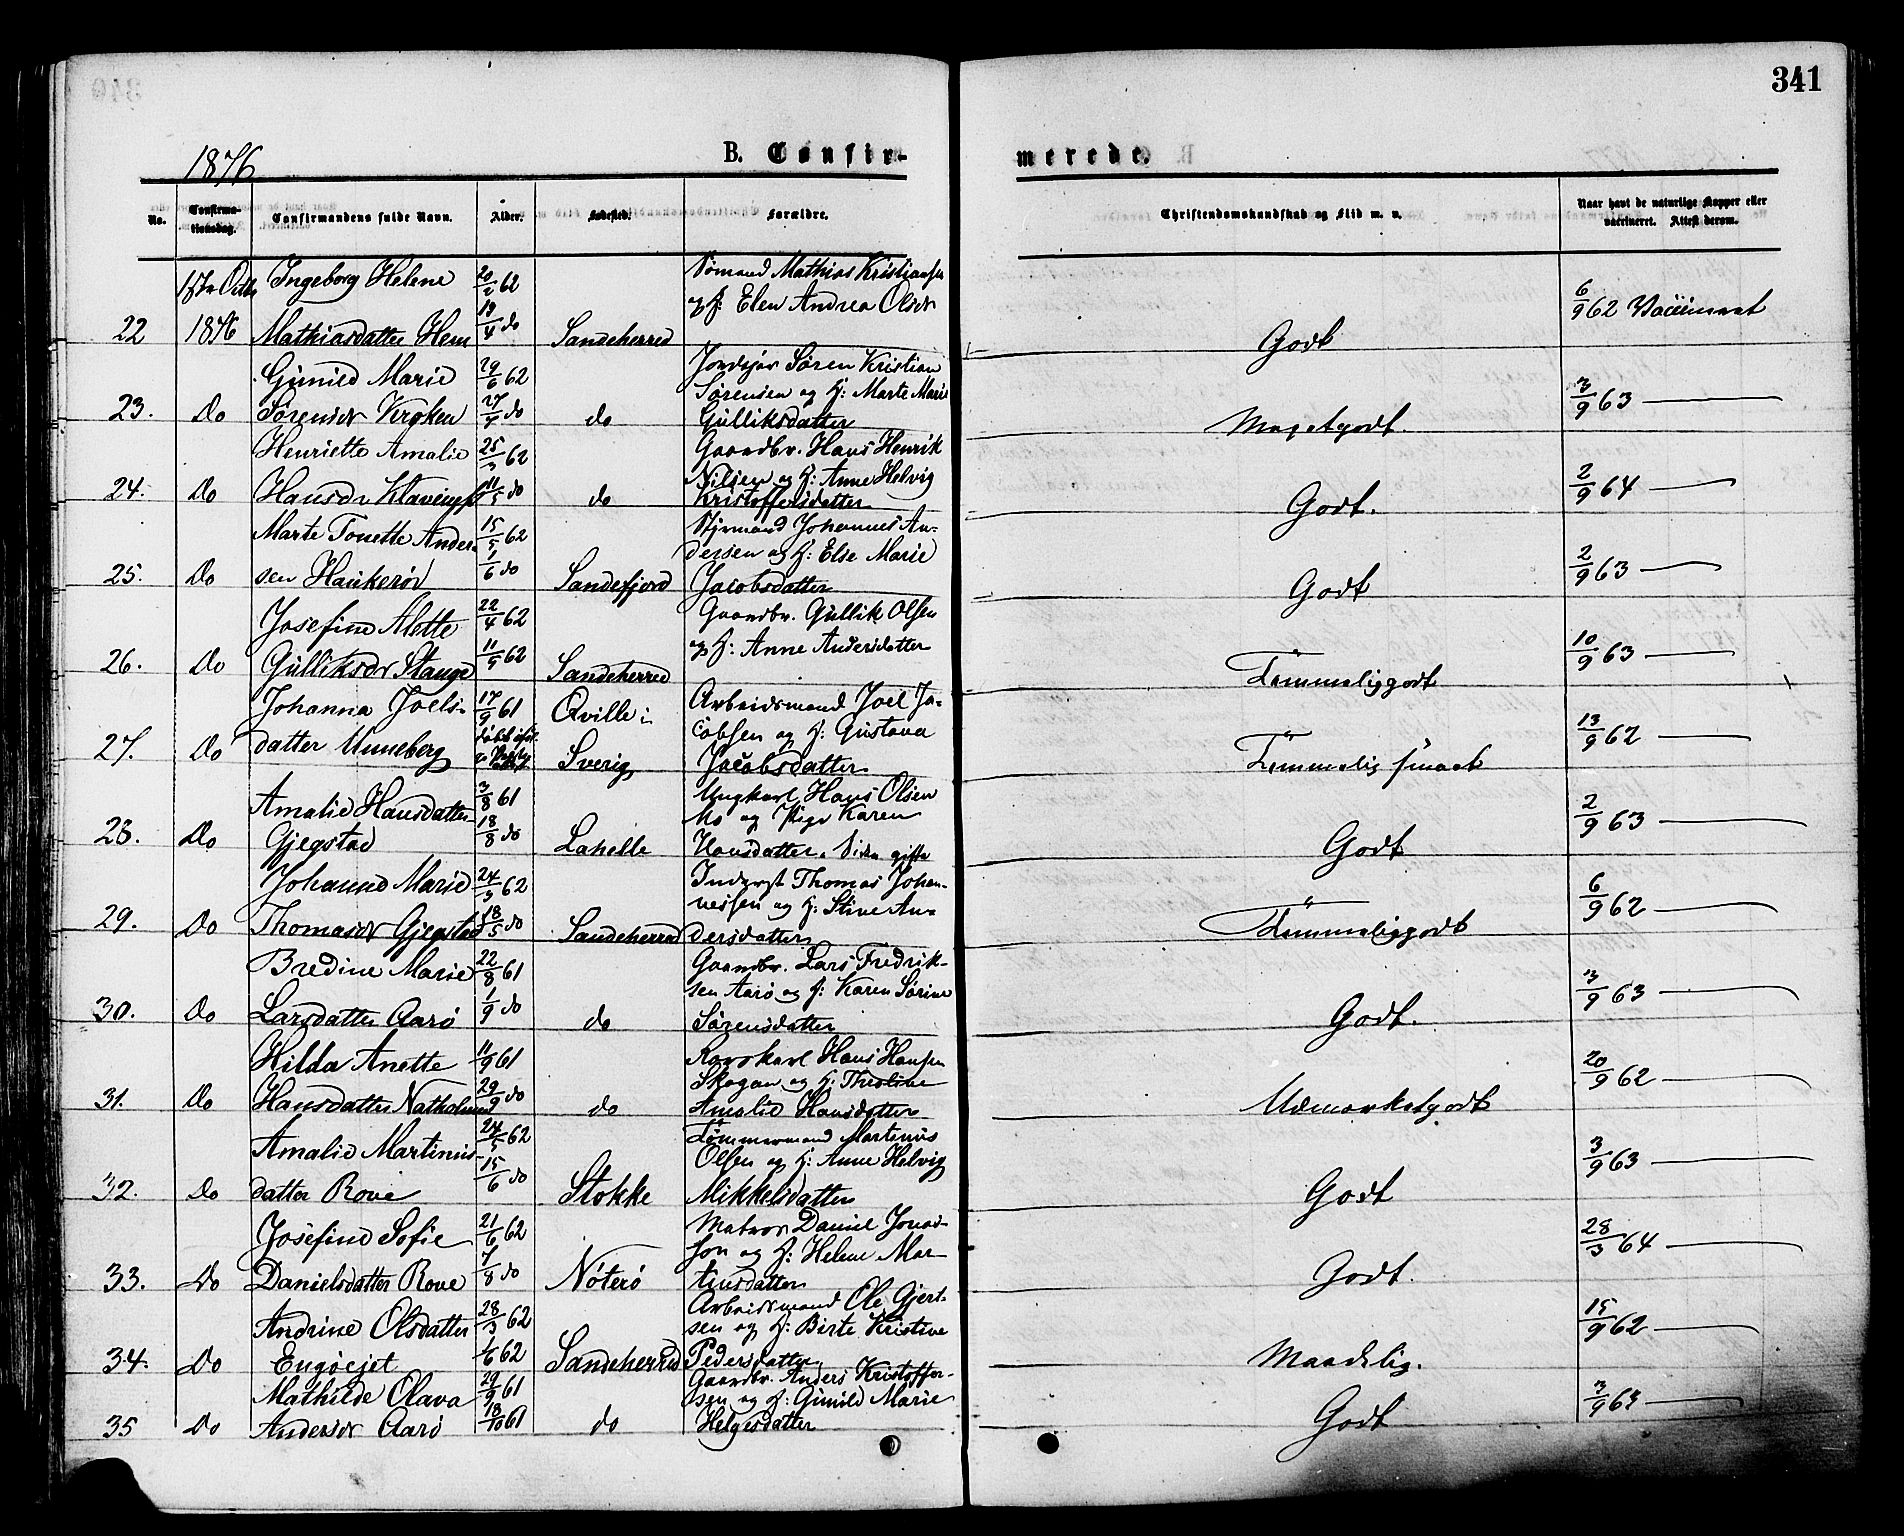 341
1876
B. Confir-
merede.
No.
Confirma-
tionsdag.
Confirmandens fulde Navn.
Alder.
Fødested.
Forældre.
Christendomskundskab og Flid m. v.
Naar havt de naturlige Kopper eller
vaccineret. Attest derom.
Ingeborg Helene 20/2 62 Sømand Mathias Kristiansen
og H: Elen Andrea Olsdr
22 1876 Mathiasdatter Hem 19/4 do Sandeherred Godt 6/9 62 Vaccineret
Gunild Marie 29/6 62 Søren Kristian
Sørensen og H: Marte Marie
23. Do Sørensdr 27/7 do do Gulliksdatter Megetgodt. 3/9 63
Henriette Amalie 25/3 62 Gaardbr. Hans Henrik
Nilsen og H: Anne Helvig
24. Do Hansdr 11/5 do do Kristoffersdatter Godt. 2/9 64
Marte Tonette Ander- 15/5 62 Styrmand Johannes An-
dersen og H: Else Marie
25. Do sen Haukerød 1/6 do Sandefjord Jacobsdatter Godt 2/9 63
Josefine Alette 22/4 62 Gaardbr. Gullik Olsen
og H: Anne Andersdatter
26. Do Gulliksdr Stange 11/5 62 Sandeherred Temmeliggodt 10/9 63
Johanna Joels- 17/9 61 Qville i Arbeidsmand Joel Ja-
cobsen og H: Gustava
27. Do datter Unneberg Sverig Jacobsdatter Temmelig smaat 13/9 62
Amalie Hansdatter 3/8 61 Ungkarl Hans Olsen
Mo og Pige Karen
28. Do Gjegstad 18/8 do Lahelle Hansdatter. Siden gifte Godt 2/9 63
Johanne Marie 24/3 62 Inderst Thomas Johan-
nessen og H: Stine An-
29. Do Thomasdr Gjegstad 18/5 do Sandeherred dersdatter Temmeliggodt 6/9 62
Bredine Marie 22/8 61 Gaardbr. Lars Fredrik-
sen Aarø og H: Karen Sørine
30. Do Larsdatter Aarø 1/9 do do Sørensdatter Godt. 3/9 63
Hilda Anette 11/9 61 Hans Hansen
Skogan og H: Theoline
31. Do Hansdatter Natholmen 29/9 do do Amalie Hansdatter Udmerketgodt 20/9 62
Amalie Martinius- 24/5 62 Tømmermand Martinius
Olsen og H: Anne Helvig
32. Do datter Rove 15/6 do Stokke Mikkelsdatter Godt 3/9 63
Josefine Sofie 21/6 62 Matros Daniel Jonas-
son og H: Helene Mar-
33. Do Danielsdatter Rove 7/8 do Nøterø tinsdatter Godt. 28/3 64
Andrine Olsdatter 28/3 62 Arbeidsmand Ole Gjert-
sen og H: Birte Kristine
34. Do Engøejet 1/6 62 Sandeherred Pedersdatter Maadelig. 15/9 62
Mathilde Olava 29/9 61 Gaardbr. Anders Kristoffer-
sen og H: Gunild Marie
35 Do Andersdr Aarø 18/10 61 do Helgesdatter Godt 3/9 63